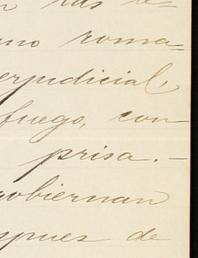 n las re-
ano roma-
erjudicial,
fuego, con
prisa. -
gobiernan
spues de